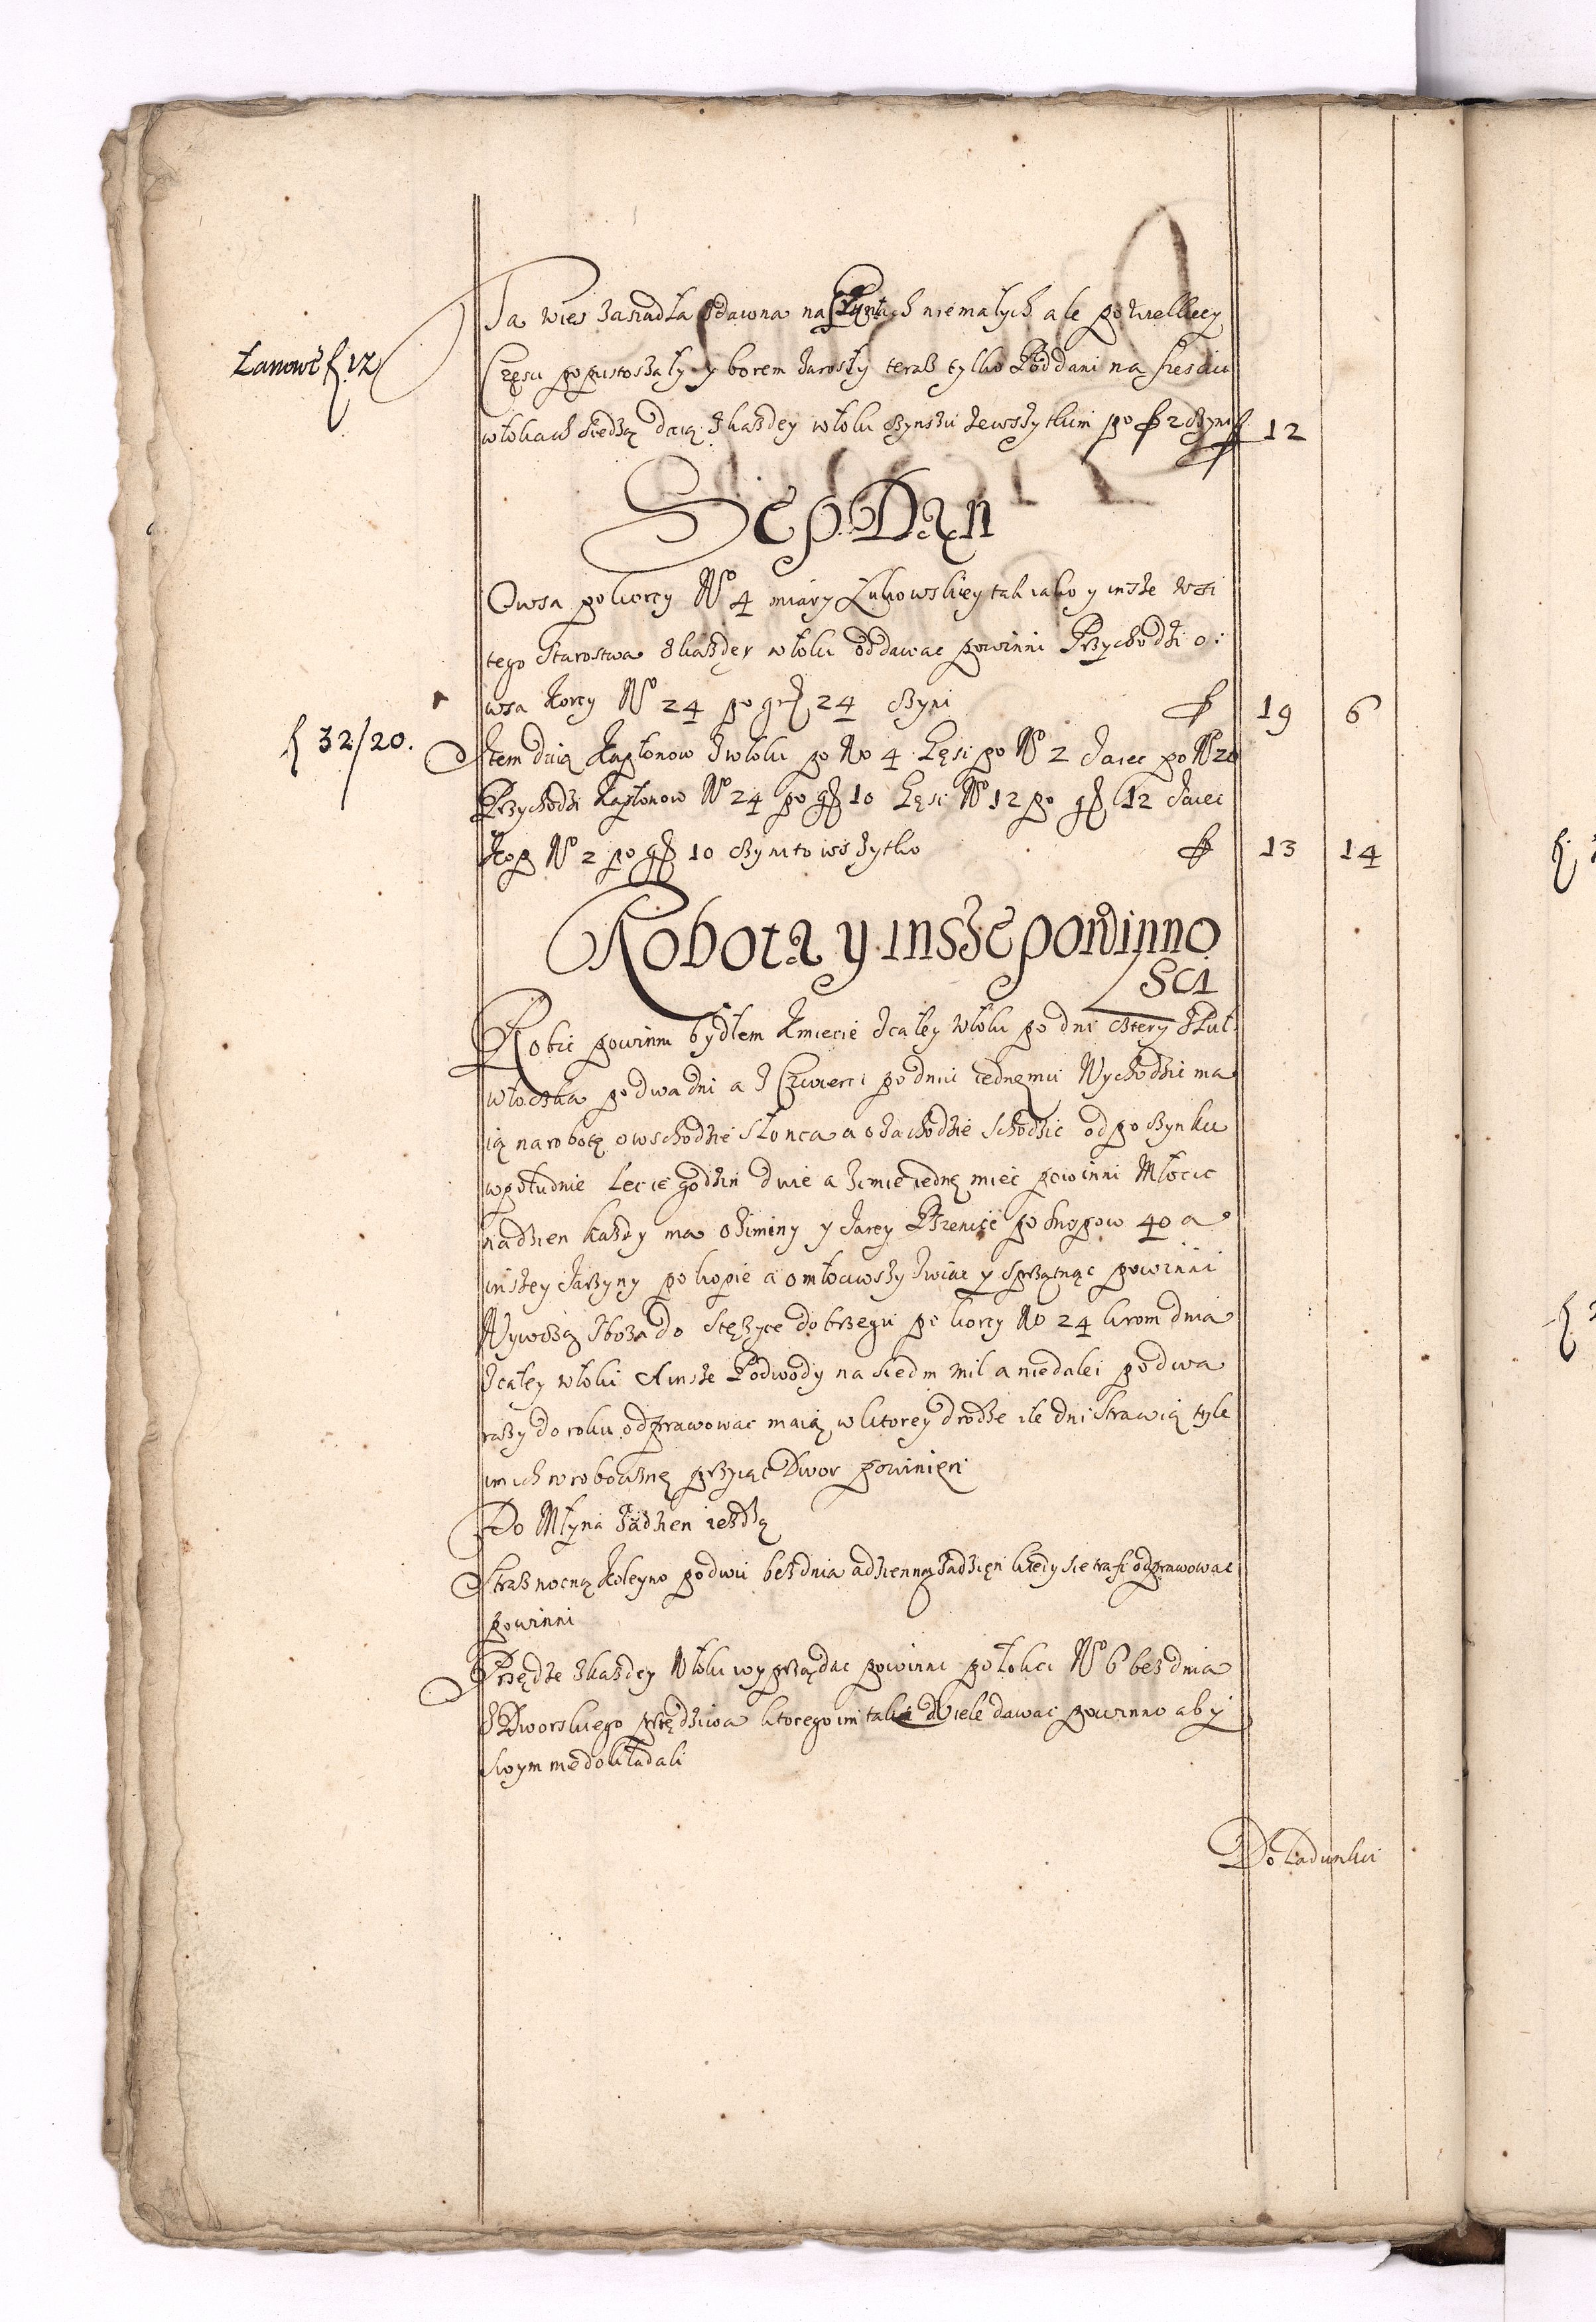 Ta wies zasiadła zdawna na Łanach niemałych ale po wielkiey
Łanowe f 12
Częsci popustoszały y borem zarosły teraz tylko Poddani na szesciu
włokach siedzą daią z kazdey włoki czynszu ze wszytkim po f 2 czyni f 12
Sep Dan
Owsa po korcy No 4 miary Łukowskiey tak iako y insze wsi
tego Starostwa z kazdey włoki oddawac powinni Przychodzi o:
wsa korcy No 24 po gr 24 czyni f 19 6
f 32/20.
Item daią Kapłonow z włoki po No 4 Gęsi po No 2 Jaiec po No 20
Przychodzi Kapłonow No 24 po gr 10 Gęsi No 12 po gr 12 Jaiec
Kop No 2 po gr 10 czyni to wszytko f 13 14
Robota y insze powinno
sci
Robic powinni bydłem Kmiecie z całey włoki po dni cztery z Puł
włoczka po dwa dni a z Czwierci po dniu iednemu Wychodzic ma
ią na robotę o wschodzie słonca a o zachodzie schodzic odpoczynku
w południe Lecie godzin dwie a zimie iednę miec powinni Młocic
na dzien kazdy ma oziminy y Jarey Pszenice po snopow 40 a
inszey Jarzyny po kopie a omłociwszy zwiac y sprzątnąc powinni
Wywozą zboza do Stęzyce do brzegu po korcy No 24 krom dnia
z całey włoki A insze Podwody na siedm mil a niedalei po dwa
razy do roku odprawowac maią w ktorey drodze ile dni strawią tyle
im ich w roboczną przyiąc Dwor powinien
Do Młyna za dzien iezdzą
Straz nocną Koleyno po dwu bez dnia a dzienną za dzien kiedy sie trafi odprawowac
powinni
Przędze z kazdey Włoki wyprządac powinni po łokci No 6 bez dnia
z Dworskiego przędziwa ktorego im tak wiele dawac powinno aby
swym nie dokładali
Do Ładunku